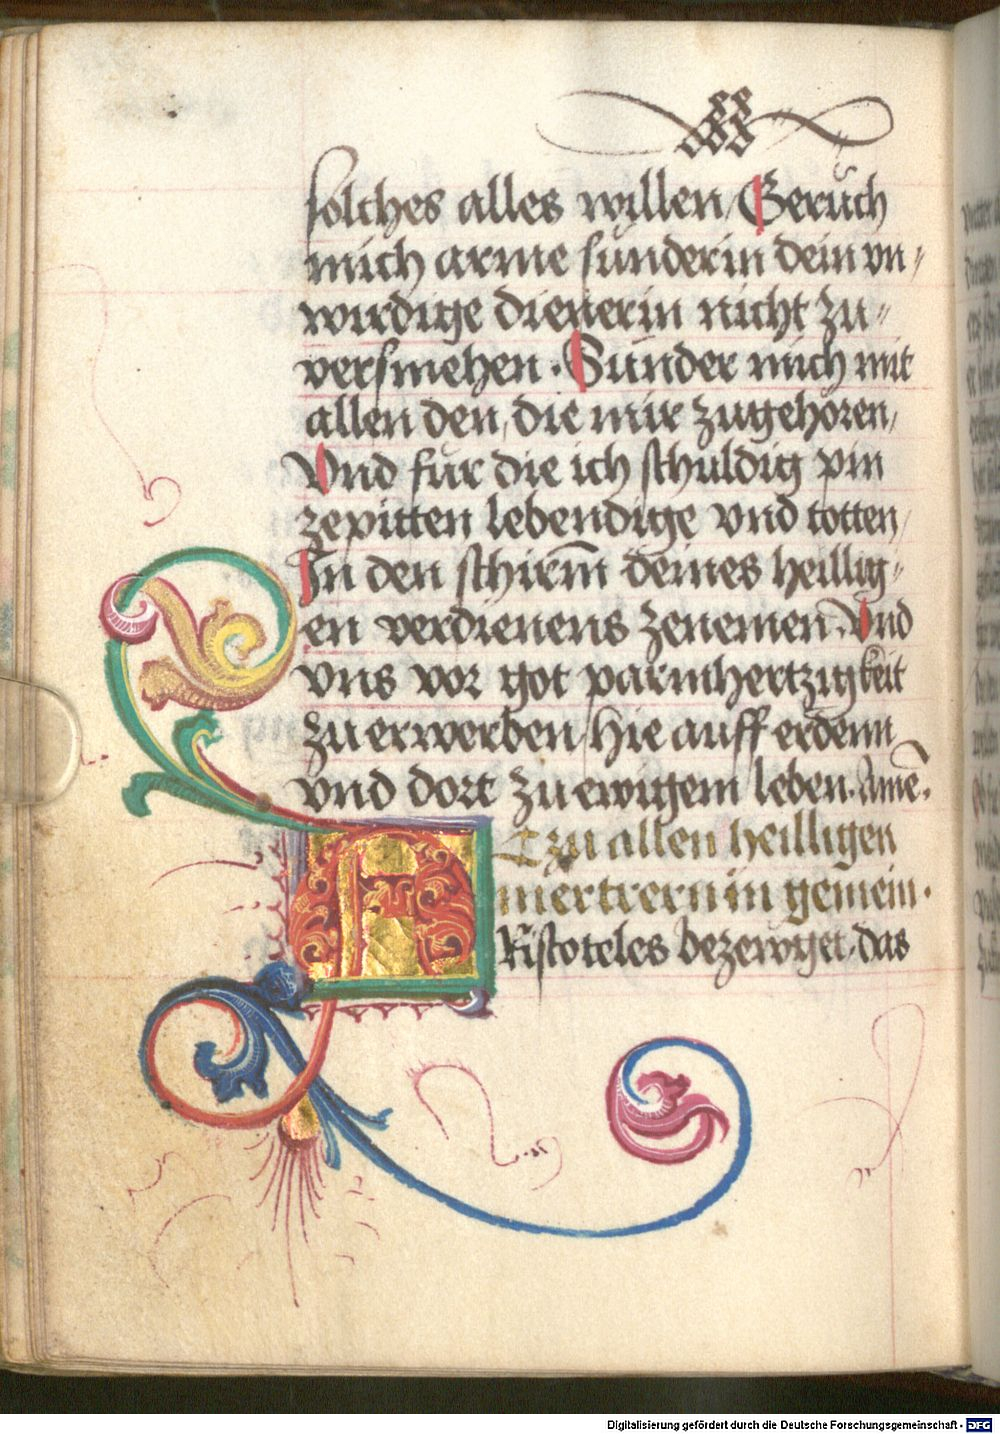 solches alles willen / Geruch
mich arme sünderin dein vn„
wirdige dienerin nicht zu„
versmehen . Sünder mich mit
allen den, die mir zugehoren,
Vnd für die ich schuldig pin
zepitten lebendige vnd totten,
In den schirm̄ deines heillig„
en verdienens zenemen. Vnd
vns vor got parmhertzigkeit
zu erwerben, hie auff erdenn
vnd dort zu ewigem leben. Amē.
Czu allen heilligen
mertrern in gemein.
ARistoteles bezewget, das
Digitalisierung gefördert durch die Deutsche Forschungsgemeinschaft - DFG